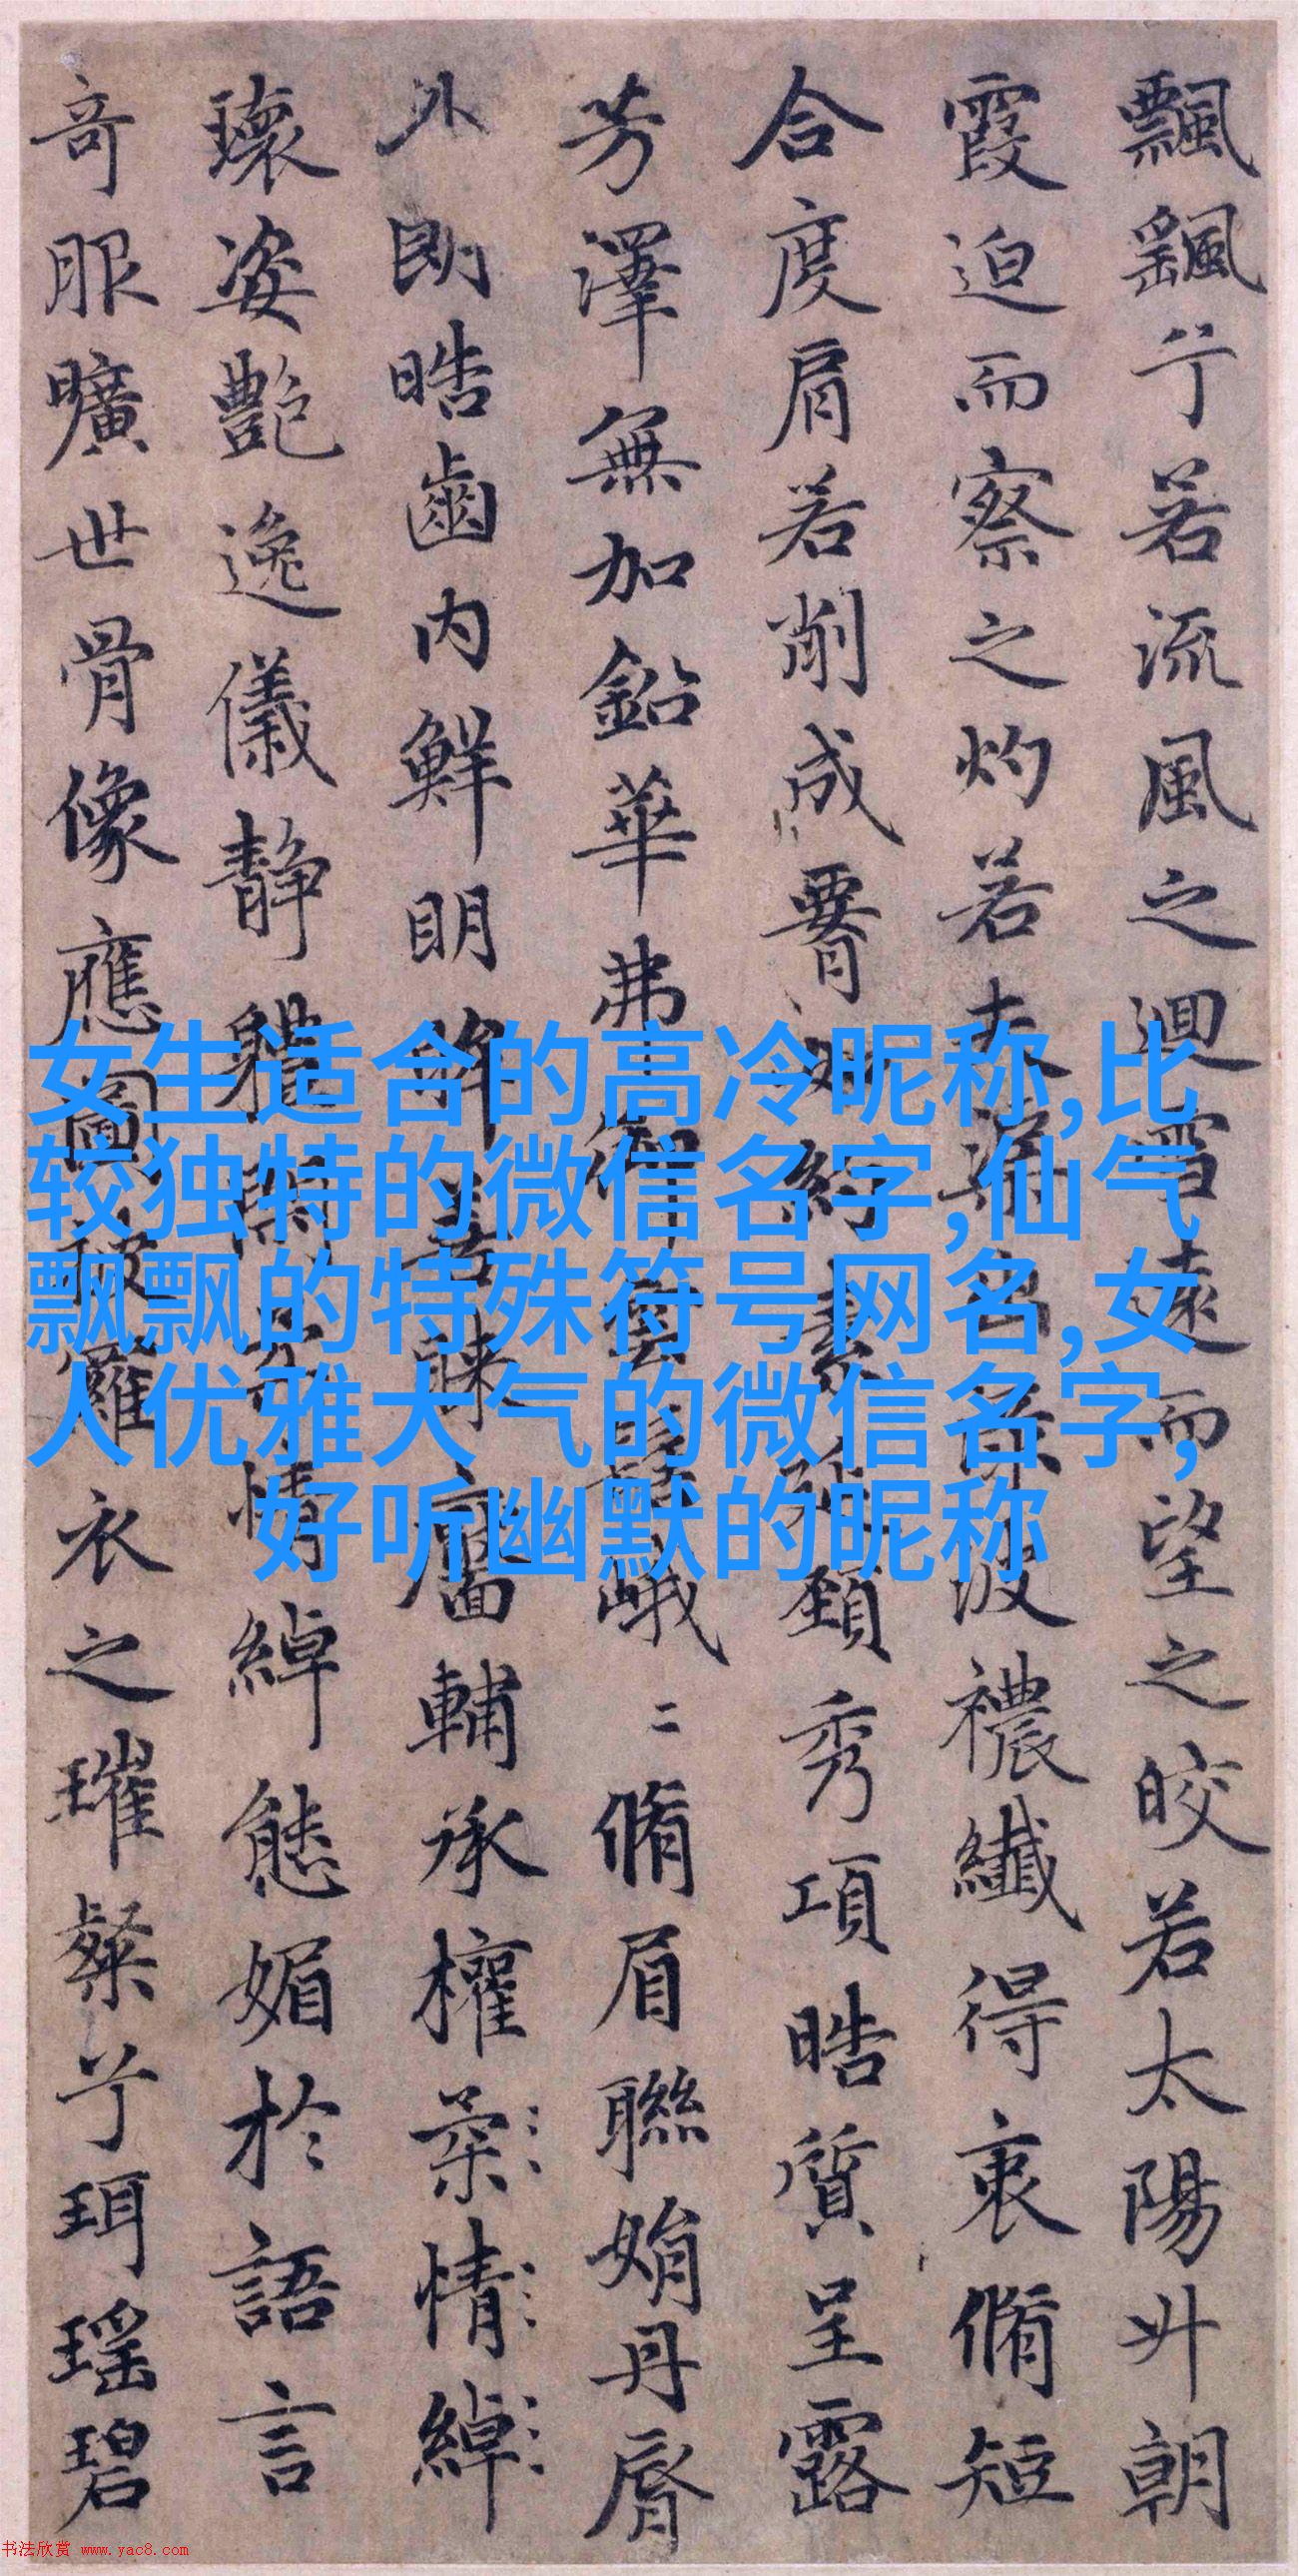 飄飖兮若流風之迴雪遠而望之皎若太陽升朝
霞迫而察之灼若夫渠出淥波襛纖得衷脩短
合度肩若削成腰如約素延頸秀項晧質呈露
芳澤無加鉛華弗御雲髻峨二脩眉聯娟丹脣
外朗晧齒内鮮明眸善睞靨輔承權柔情綽
瓌姿艶逸儀静軆閑柔情綽態媚於語言
奇服曠世骨像應圖披羅衣之璀粲兮珥瑶碧
女生适合的高冷昵称,比
较独特的微信名字,仙气
飘飘的特殊符号网名,女
人优雅大气的微信名字,
好听幽默的昵称
书法欣赏 www.yac8.com